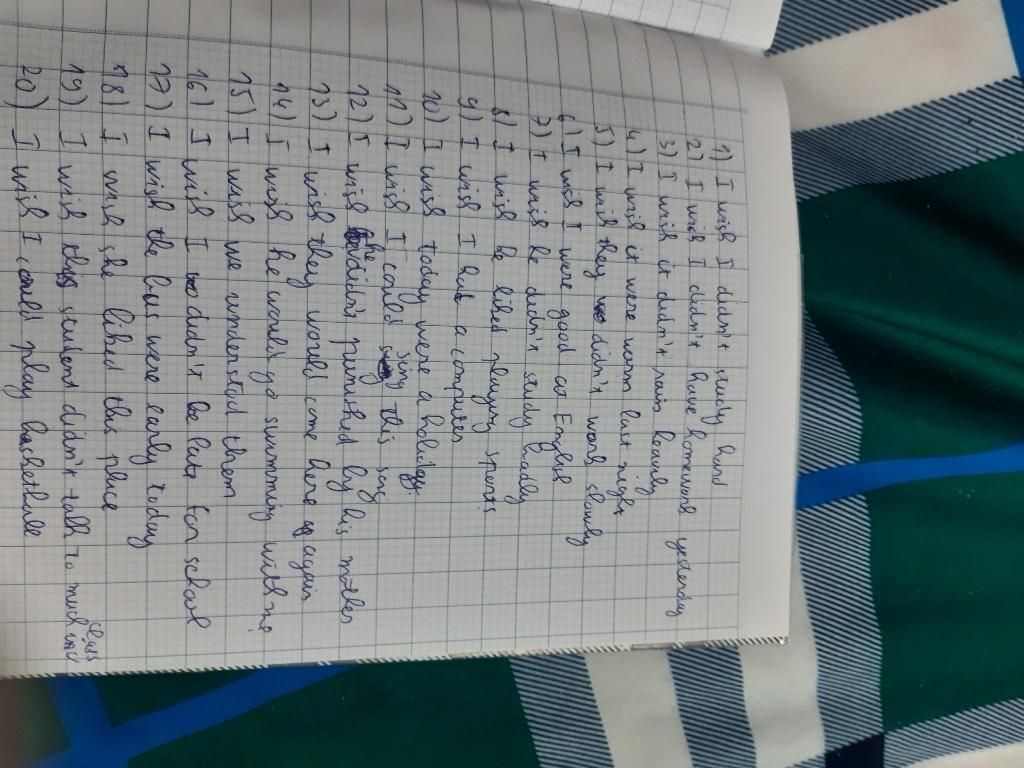 1) I wish I didn't study hard
2) I wish I didn't have homework yesterday
3) I wish it didn't rain heavily
4) I wish it were warm last night
5) I wish they didn't work slowly
6) I wish I were good at English
7) I wish he didn't study badly
8) I wish he liked playing sports
9) I wish I had a computer
10) I wish today were a holiday.
11) I wish I could sing this song
12) I wish he didn't punished by his mother
13) I wish they would come here again
14) I wish he would go summing with me
15) I wish we understad them
16) I wish I didn't be late for school
17) I wish the bus were early today
18) I wish she liked this place
19) I wish this students didn't talk to much in class
20) I wish I could play basketball